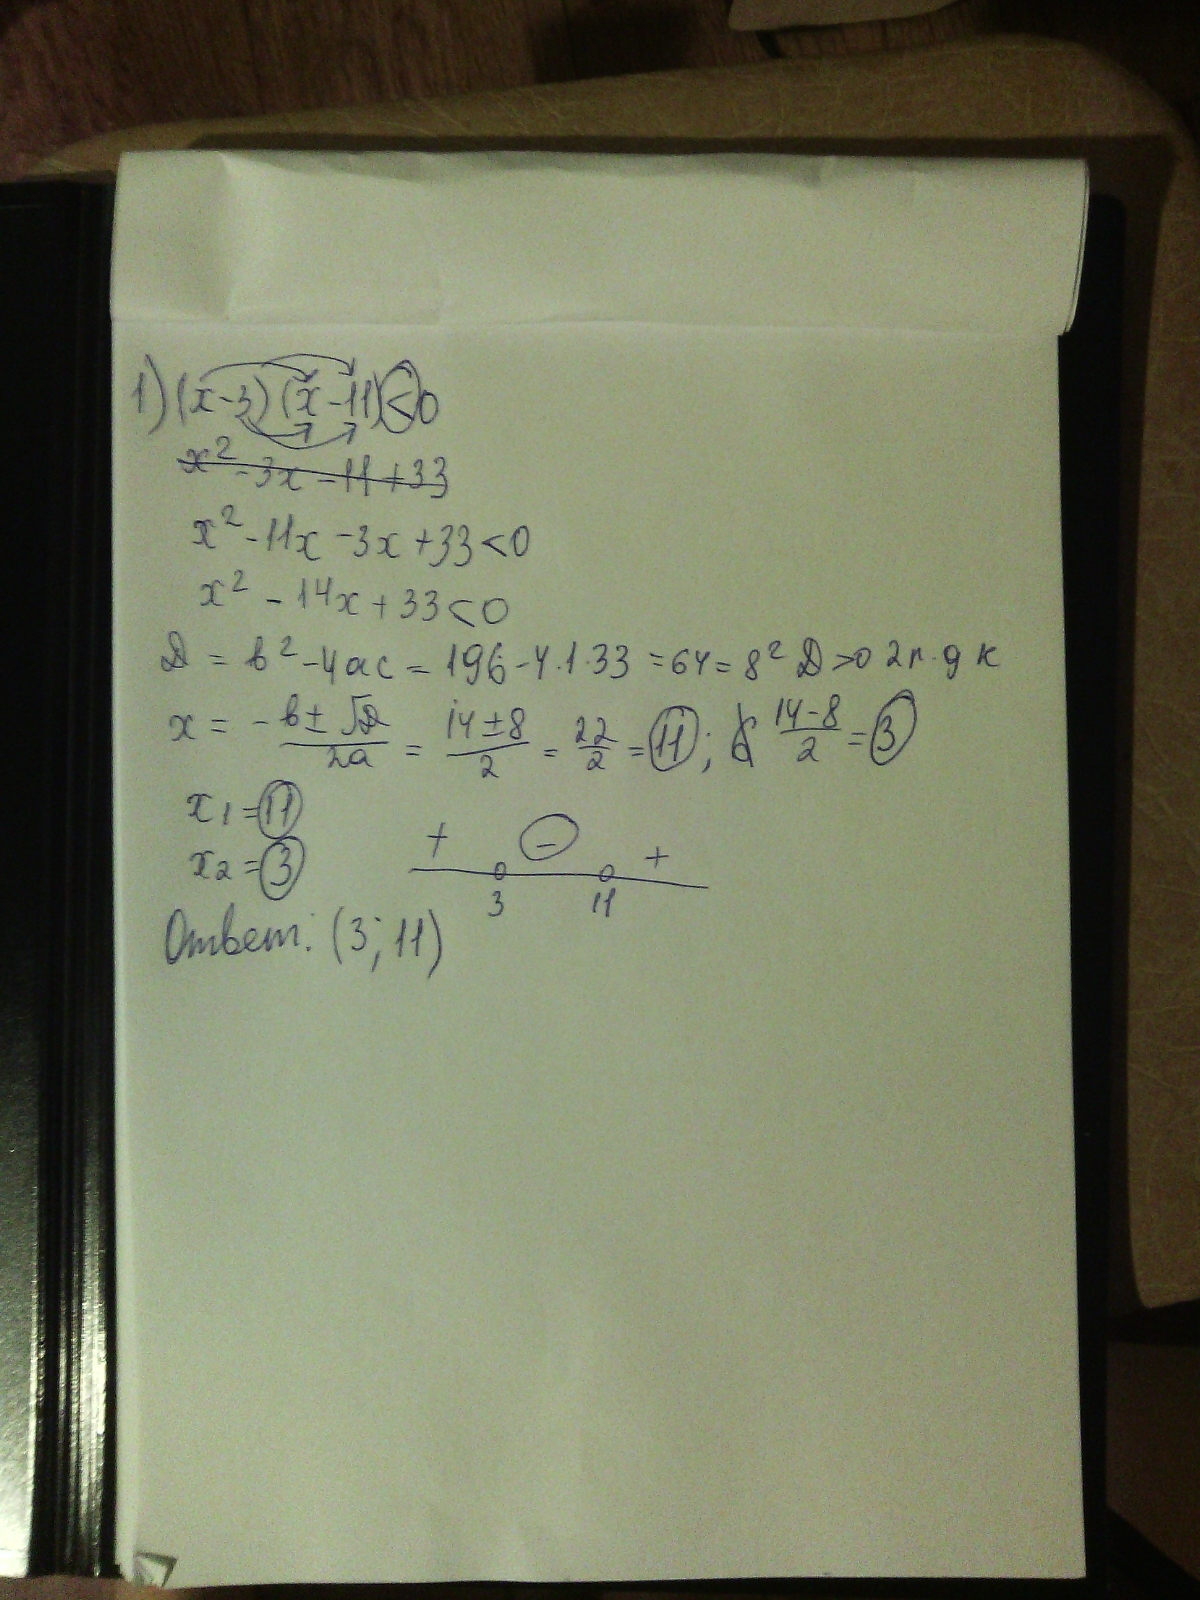 1) (x-3)(x-11)<0
x²-3x-11+33
x²-11x-3x+33<0
x²-14x+33<0
D=b²-4ac=196-4·1·33=64=8² D>0 2 р.д к
x=-b±√D/2a=14±8/2=22/2=11; 14-8/2=3
x1=11
x2=3
+ - +
3 11
Ответ: (3; 11)